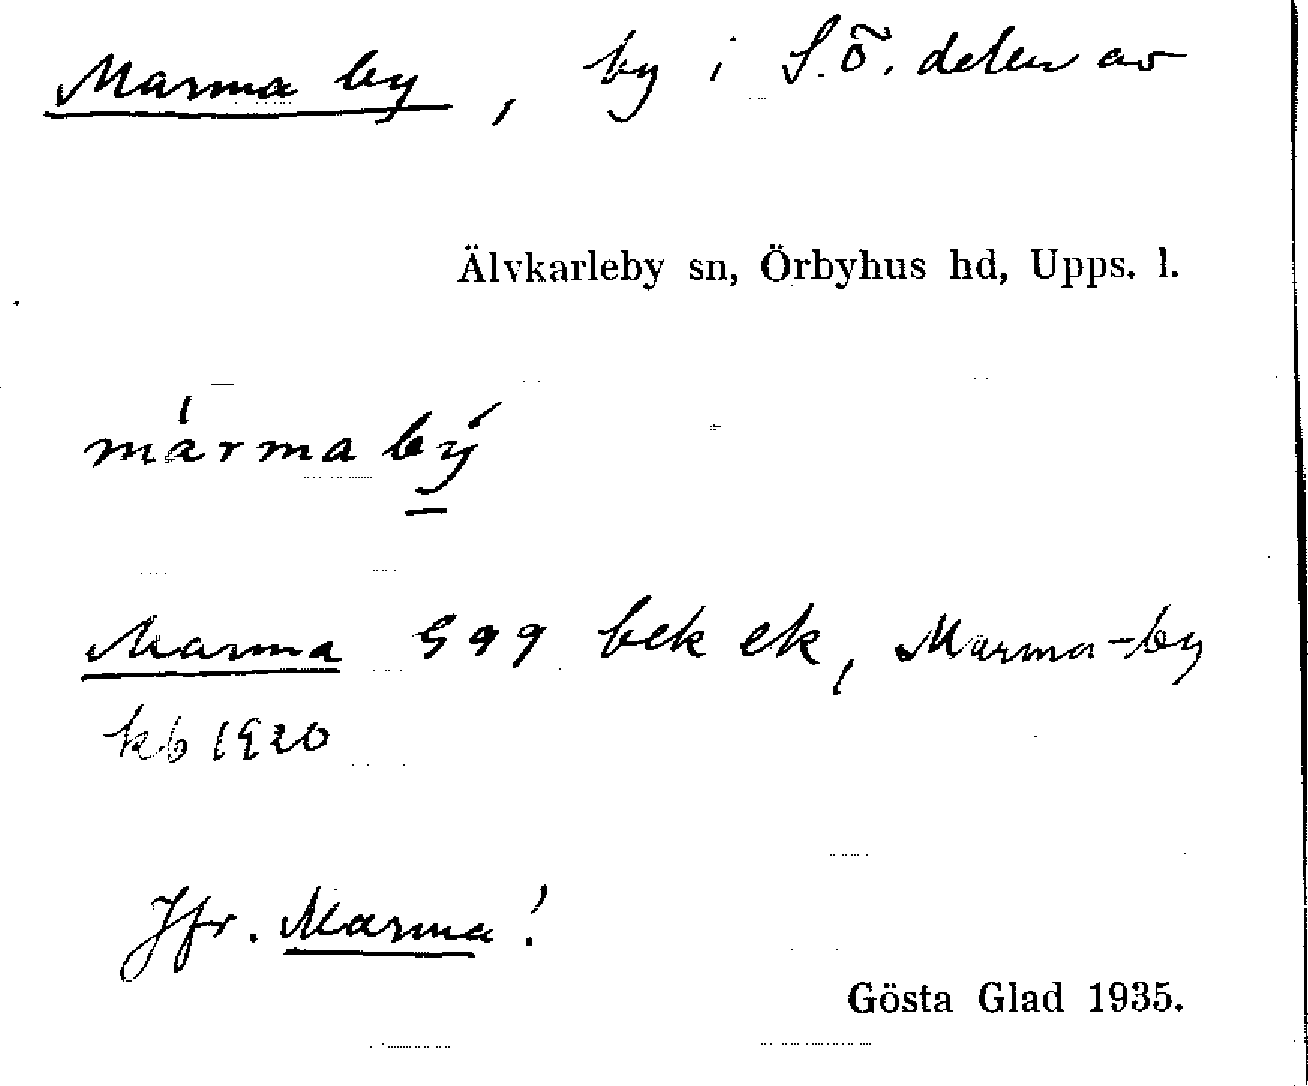 Marma by, by i S.Ö. delen av
Älvkarleby sn, Örbyhus hd, Upps. l.
márma bý
Marma 599 bek ek, Marma-by
kb 1920
Jfr. Marma!
Gösta Glad 1935.